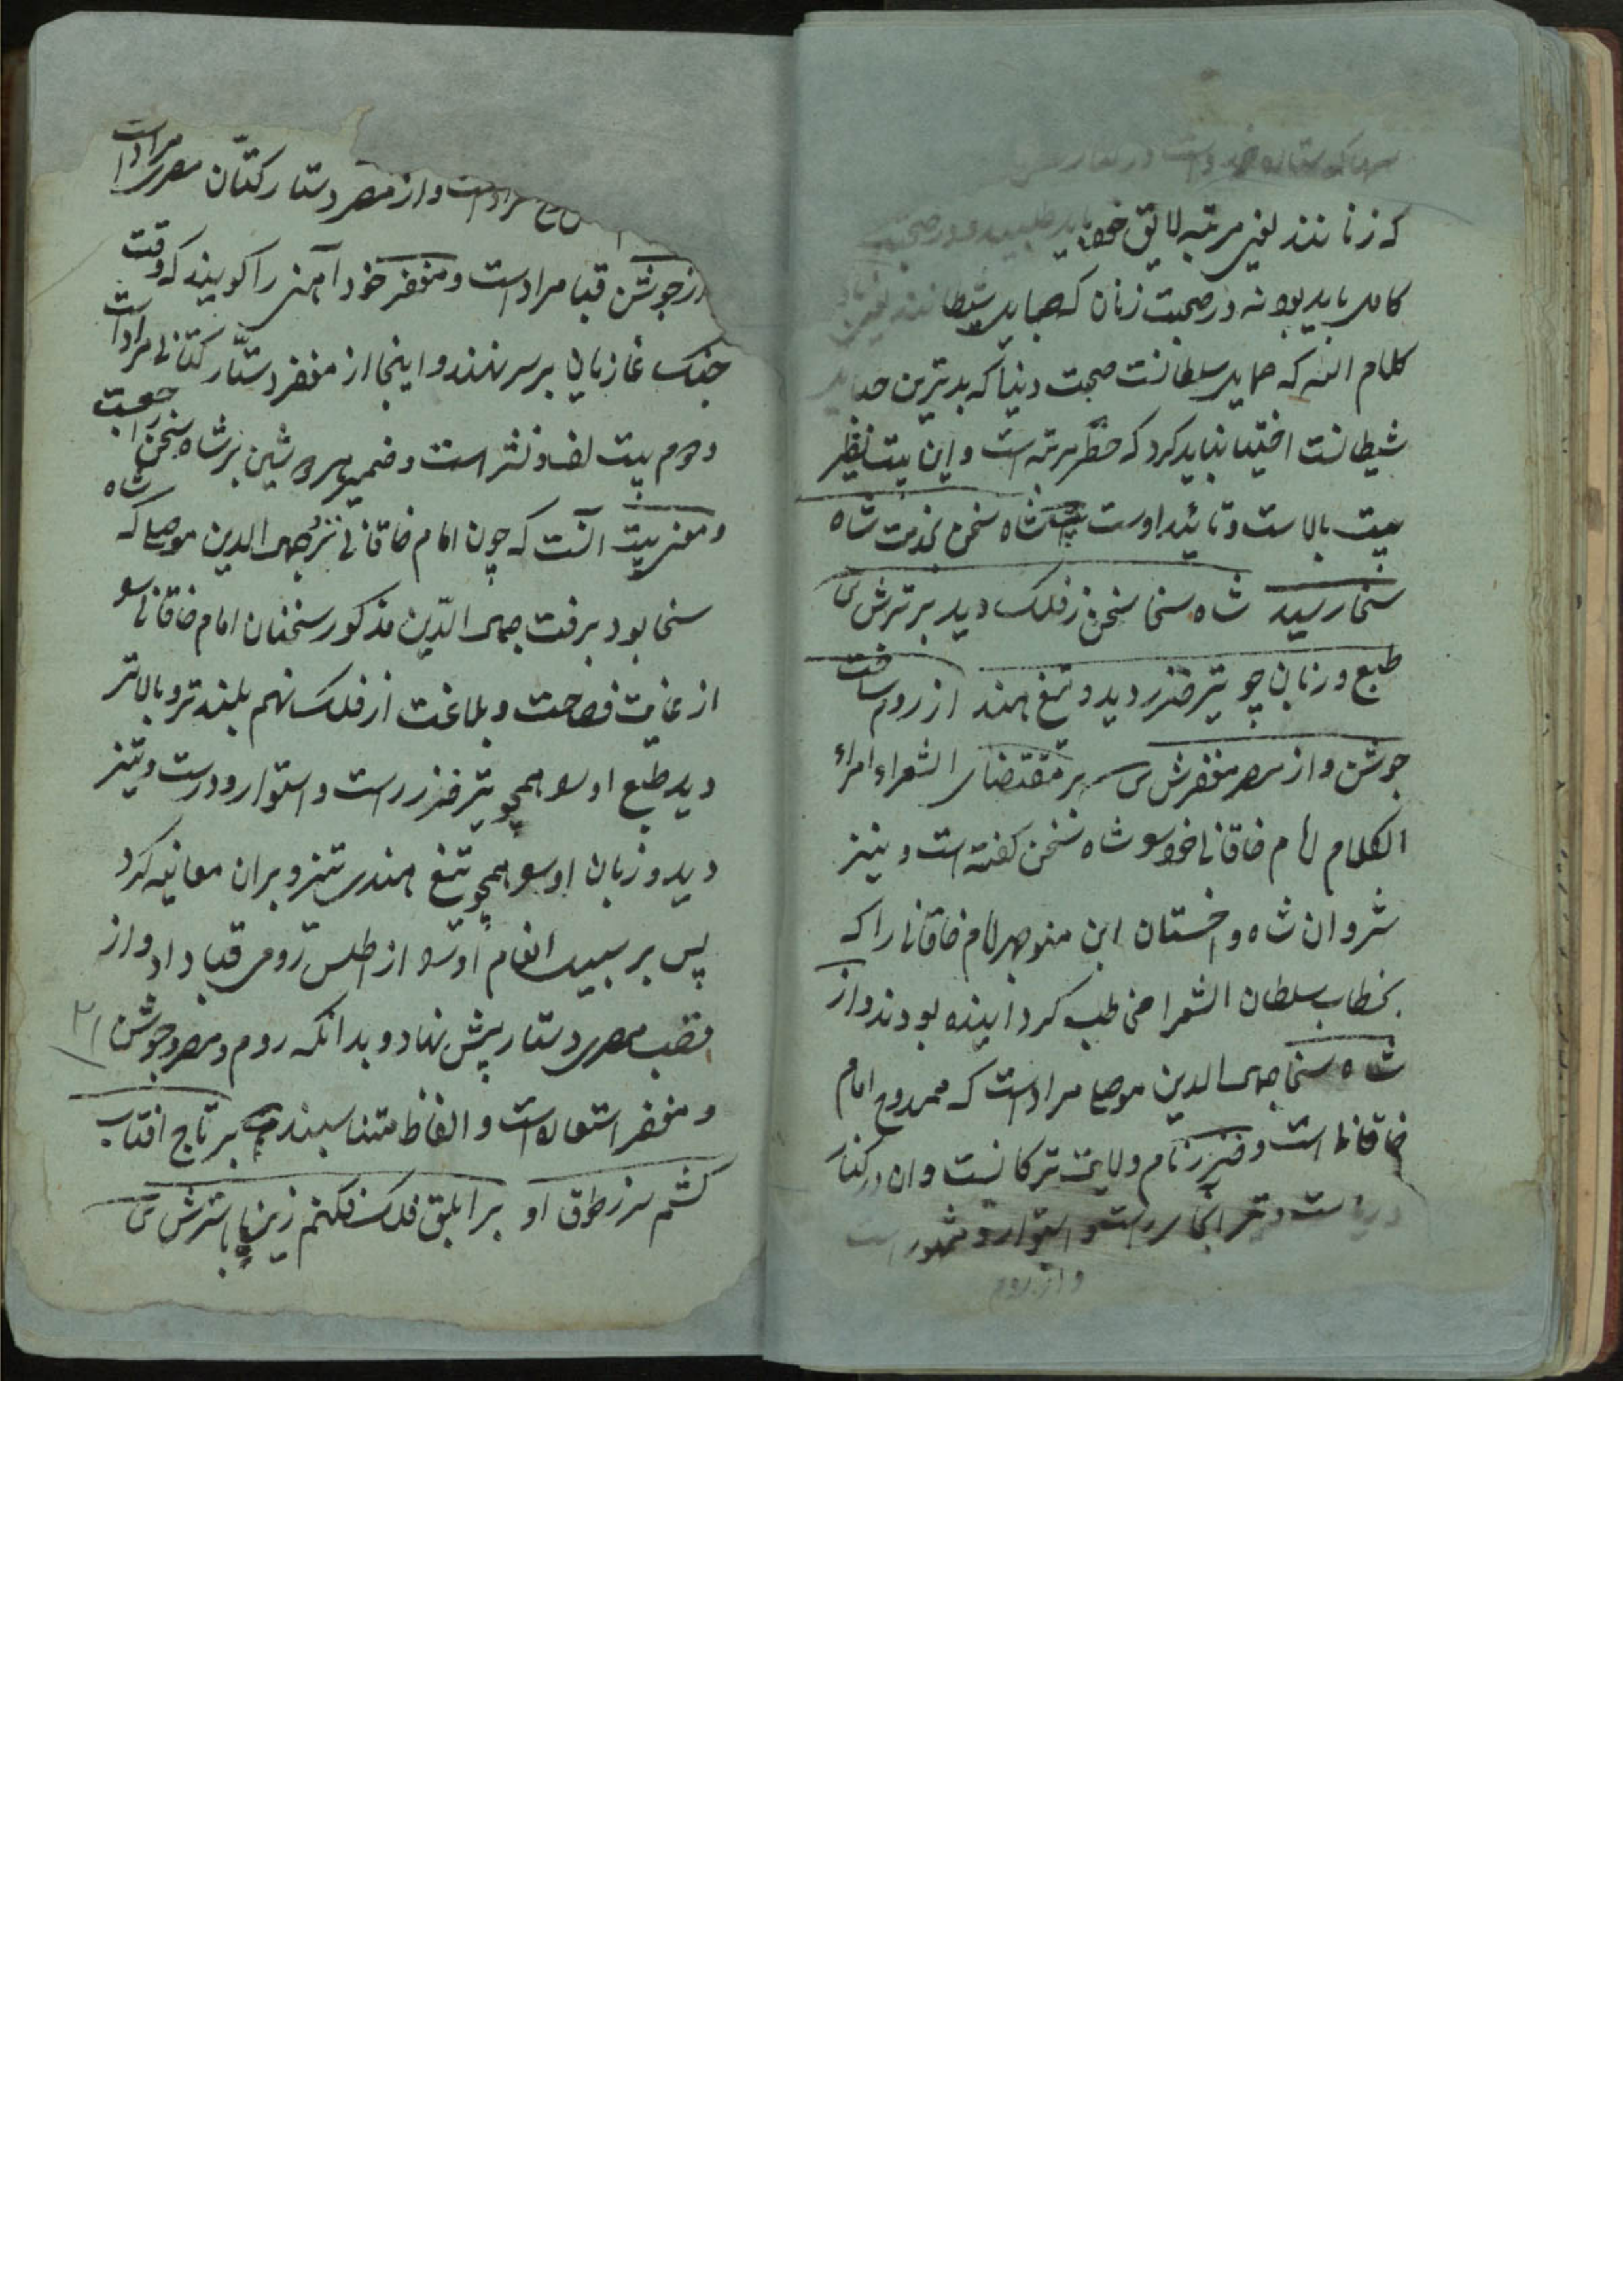 که زنانند یعنی مرتبه لایق خود باید طلبید و در صحبت
کامل باید بود نه در صحبت زنان که حبایل شیطانند یعنی
کلام الله که حبایل سلطانست صحبت دنیا که بدترین حبایل
شیطانست اختیار نباید کرد که خطر مرتبه است و این بیت نظیر
بیت بالاست و تائید اوست شاه سخن بخدمت شاه
سخا رسید شاه سخا سخن ز فلک دید برترش س
طبع و زبان چو تیر خزر دید و تیغ هند از روم ساخت
جوشن و از مصر مغفرش س بر مقتضای الشعراء امراء
الکلام امام خاقانی خود سو شاه سخن کفته است و نیز
شروان شاه و اخستان ابن منوچهر امام خاقانی را که
بخطاب سلطان الشعرا مخاطب کردانیده بودند و از
شاه سخا جمال الدین موصلی مراد است که ممدوح امام
خاقانی است و خزر نام ولایت ترکانست و ان در کنار
دریاست و تیر انجا راست و استوار و مشهور است
و از روم
مراد است و از مصر دستار کتّان مصری مراد است
از جوشن قبا مراد است و مغفر خود آهنی را کویند که وقت
جنک غازیان بر سر نهند و اینجا از مغفر دستار کتانی مراد است
دوم بیت لف و نشر است و ضمیر هر دو شین بر شاه سخن راجعست
و معنی بیت آنست که چون امام خاقانی نزد جمال الدین موصلی که شاه
سخا بود برفت جمال الدّین مذکور سخنان امام خاقانی سو
از غایت فصاحت و بلاغت از فلک نهم بلندتر و بالاتر
دید طبع او سو همچو تیر خزر راست و استوار و درست و تیز
دید و زبان او سو همچو تیغ هندی تیز و بران معاینه کرد
پس بر سبیل انعام او سو از اطلس رومی قبا داد و از
قصب مصری دستار پیش نهاد و بدانکه روم و مصر و جوشن
و مغفر استعاره است و الفاظ متناسبند بر تاج افتاب
کشم سر ز طوق او بر ابلق فلک فکنم زین باسترش س